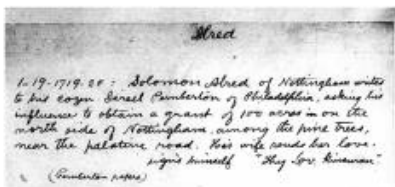 Sbred
1-19-1719.20: Solomon Sbred of Nottingham writes
to his cozen Isrell Pemberton of Philadelphia, asking his
influence to obtain a grant of 100 acres in on the
north side of Nottingham, among the pine trees,
near the palatine road. His wife sends her love.
signs himself "thy Lov. Kinsman."
(Pemberton papers)